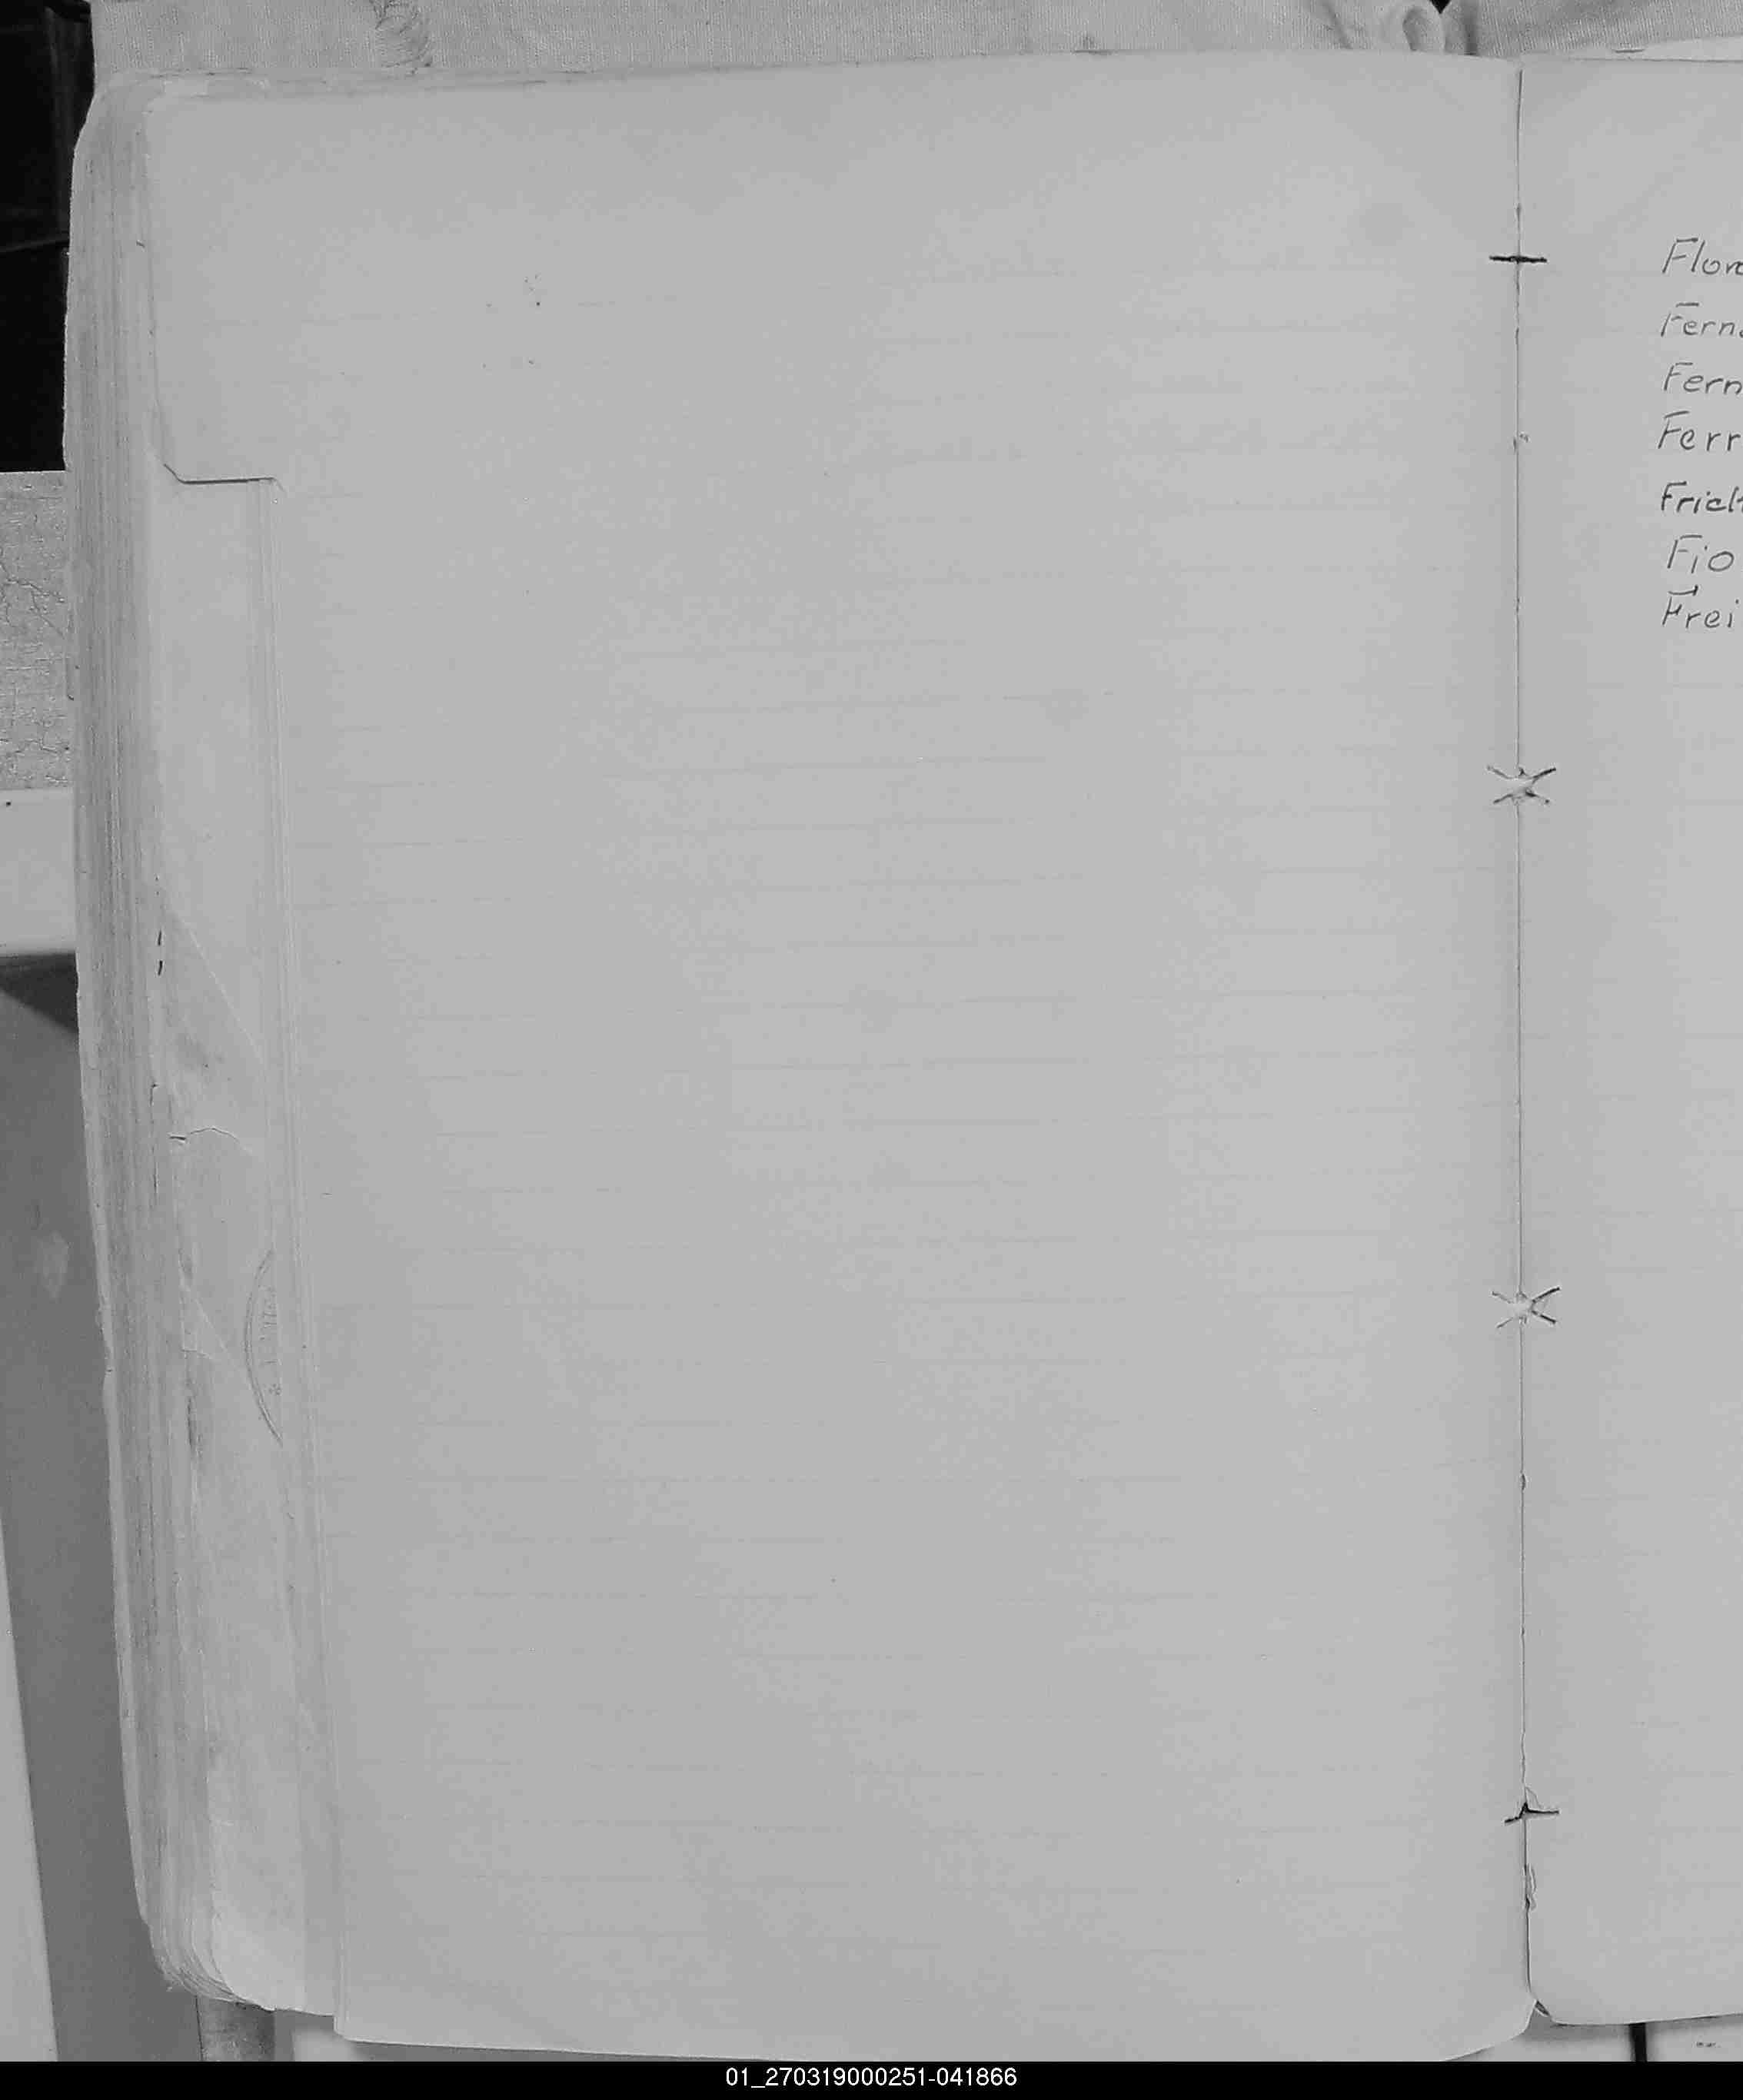 Flor
Fern
Fern
Ferr
Fio
Frei
01_270319000251-041866